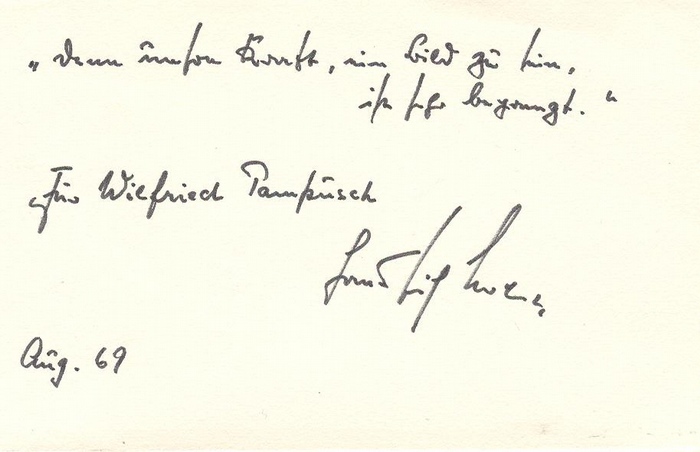 „Denn unsere Kraft, ein Bild zu sein,
ist sehr begrenzt."
Für Wilfried Pampusch
Aug. 69